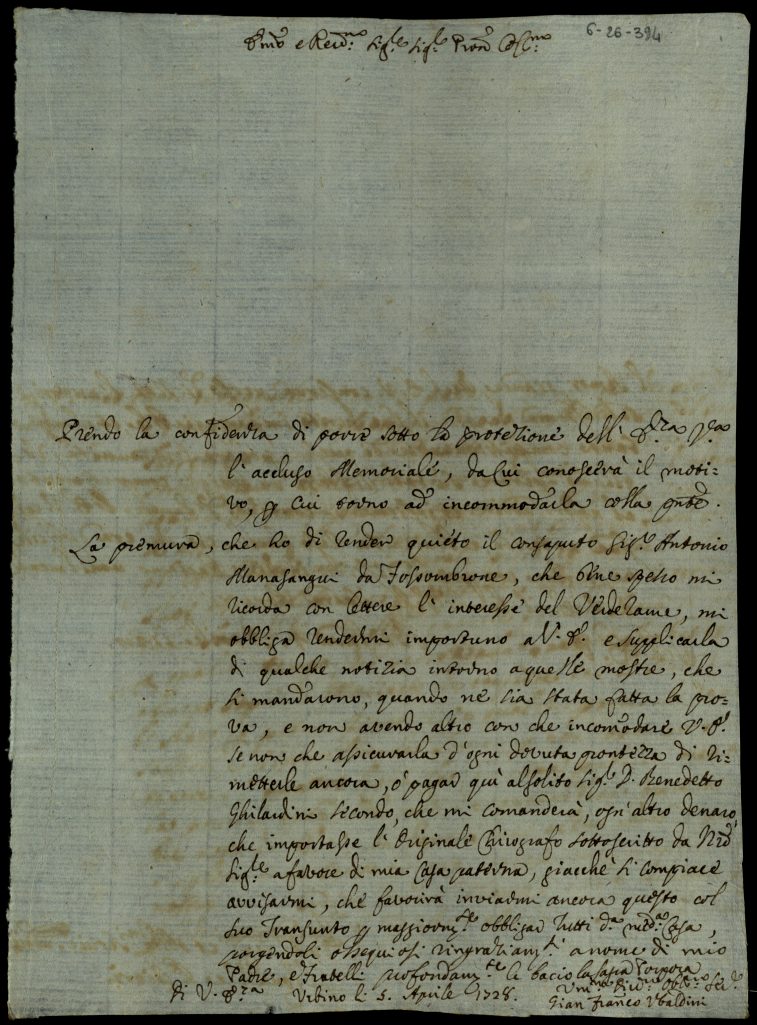 6-26-394
Em̃o e Rev.mo Sig.re Sig.re Pron̄ Col.mo
Prendo la confidenza di porre sotto la protezione dell' E.za V.ra
l' accluso Memoriale, da cui conoscerà il moti=
vo, p cui torno ad incommodarla colla pnte.
La premura, che ho di render quieto il consaputo Sig.r Antonio
Manasangui da Fossombrone, che bene spesso mi
ricorda con lettere l' interesse del Verderame, mi
obbliga rendermi importuno a V. E. e supplicarla
di qualche notizia intorno a quelle mostre, che
si mandarono, quando ne sia stata fatta la pro=
va, e non avendo altro con che incomodare V. E.
se non che assicurarla d'ogni dovuta prontezza di ri=
metterle ancora, ò pagar quì al solito Sig.r D. Benedetto
Ghilardini secondo, che mi comanderà, ogn' altro denaro,
che importasse l' Originale Chirografo sottoscritto da N.ro
Sig.re a favore di mia Casa paterna, giacche si compiace
avvisarmi, che favorirà inviarmi ancora questo col
suo Transunto p maggiorm.te obbligar tutti d.a med.a Casa,
porgendoli ossequiosi ringraziam.ti a nome di mio
Padre, e Fratelli profondam.te le bacio la sagra Porpora
Di V. E.za Urbino li 5. Aprile 1728.
Um.mo Div.mo Obb.mo Ser.e
Gian Franco Ubaldini